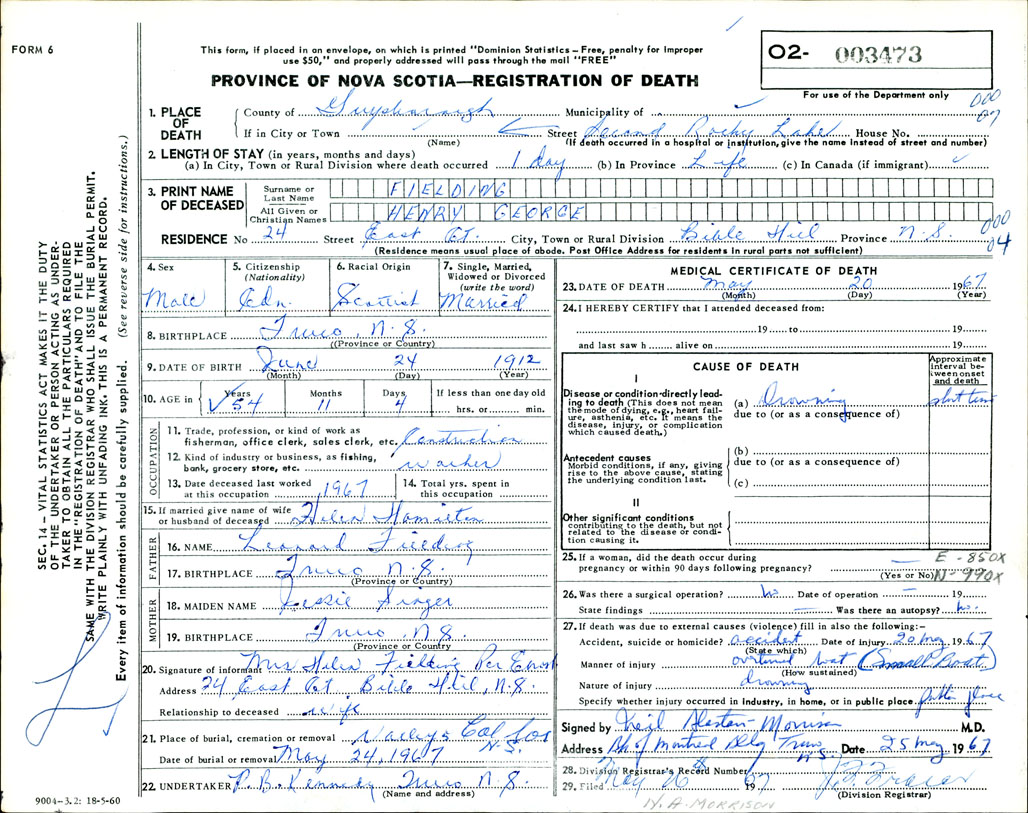 FORM 6
This form, if placed in an envelope, on which is printed "Dominion Statistics – Free, penalty for improper
use $50," and properly addressed will pass through the mail "FREE"
O2- 003473
PROVINCE OF NOVA SCOTIA—REGISTRATION OF DEATH
For use of the Department only
000
07
1. PLACE OF DEATH
County of Guysborough Municipality of
If in City or Town (Name) Street Second Rocky Lake House No.
(If death occurred in a hospital or institution, give the name instead of street and number)
2. LENGTH OF STAY (in years, months and days)
(a) In City, Town or Rural Division where death occurred 1 day (b) In Province Life (c) In Canada (if immigrant)
3. PRINT NAME OF DECEASED
Surname or Last Name FIELDING
All Given or Christian Names HENRY GEORGE
RESIDENCE No 24 Street East Ct. City, Town or Rural Division Bible Hill Province N.S.
000
04
(Residence means usual place of abode. Post Office Address for residents in rural parts not sufficient)
4. Sex
Male
5. Citizenship (Nationality)
Cdn.
6. Racial Origin
Scottish
7. Single, Married, Widowed or Divorced (write the word)
Married
8. BIRTHPLACE Truro, N.S.
(Province or Country)
9. DATE OF BIRTH June 24 1912
(Month) (Day) (Year)
10. AGE in Years 54 Months 11 Days 4 If less than one day old hrs. or min.
OCCUPATION
11. Trade, profession, or kind of work as fisherman, office clerk, sales clerk, etc. Construction
12. Kind of industry or business, as fishing, bank, grocery store, etc.
13. Date deceased last worked at this occupation 1967
14. Total yrs. spent in this occupation
15. If married give name of wife or husband of deceased Helen Hamilton
FATHER
16. NAME Leonard Fielding
17. BIRTHPLACE Truro N.S.
(Province or Country)
MOTHER
18. MAIDEN NAME Jessie
19. BIRTHPLACE Truro, N.S.
(Province or Country
20. Signature of informant Mrs Helen Fielding Per
Address 24 East Ct. Bible Hill, N.S.
Relationship to deceased wife
21. Place of burial, cremation or removal Col. Co.
N.S.
Date of burial or removal May 24, 1967
22. UNDERTAKER P. B. Kennedy Truro N.S.
(Name and address)
9004–3.2: 18-5-60
MEDICAL CERTIFICATE OF DEATH
23. DATE OF DEATH May 20 1967
(Month) (Day) (Year)
24. I HEREBY CERTIFY that I attended deceased from:
19 to 19
and last saw h alive on 19
CAUSE OF DEATH
Approximate interval between onset and death
I
Disease or condition directly leading to death (This does not mean the mode of dying, e.g., heart failure, asthenia, etc. It means the disease, injury, or complication which caused death.)
(a) Drowning short time
due to (or as a consequence of)
Antecedent causes
Morbid conditions, if any, giving rise to the above cause, stating the underlying condition last.
(b)
due to (or as a consequence of)
(c)
II
Other significant conditions
contributing to the death, but not related to the disease or condition causing it.
25. If a woman, did the death occur during
pregnancy or within 90 days following pregnancy? –
(Yes or No)
E - 850X
N- 990X
26. Was there a surgical operation? No Date of operation – 19
State findings — Was there an autopsy? No.
27. If death was due to external causes (violence) fill in also the following:–
Accident, suicide or homicide? accident Date of injury 20 May 1967
(State which)
Manner of injury overturned boat (Small Boat)
(How sustained)
Nature of injury drowning
Specify whether injury occurred in industry, in home, or in public place. public place
Signed by Neil Morrison M.D.
Address Bk of Montreal Bldg Truro N.S. Date 25 May 1967
28. Division Registrar's Record Number
29. Filed May 26 1967
(Division Registrar)
N. A. MORRISON
SEC. 14 – VITAL STATISTICS ACT MAKES IT THE DUTY
OF THE UNDERTAKER OR PERSON ACTING AS UNDER-
TAKER TO OBTAIN ALL THE PARTICULARS REQUIRED
IN THE "REGISTRATION OF DEATH" AND TO FILE THE
SAME WITH THE DIVISION REGISTRAR WHO SHALL ISSUE THE BURIAL PERMIT.
WRITE PLAINLY WITH UNFADING INK. THIS IS A PERMANENT RECORD.
Every item of information should be carefully supplied. (See reverse side for instructions.)